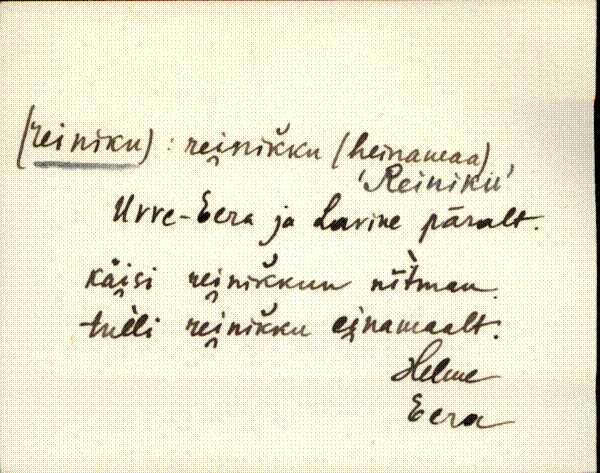 (reiniku) : rei̯nĭkku (heinamaa)
'Reinikü'
Urre-Eera ja Lavine päralt.
käi̯si rei̯nĭkkuu nĭt̀mau.
tuĕli rei̯nĭkku ei̯namaalt.
Helme
Eera